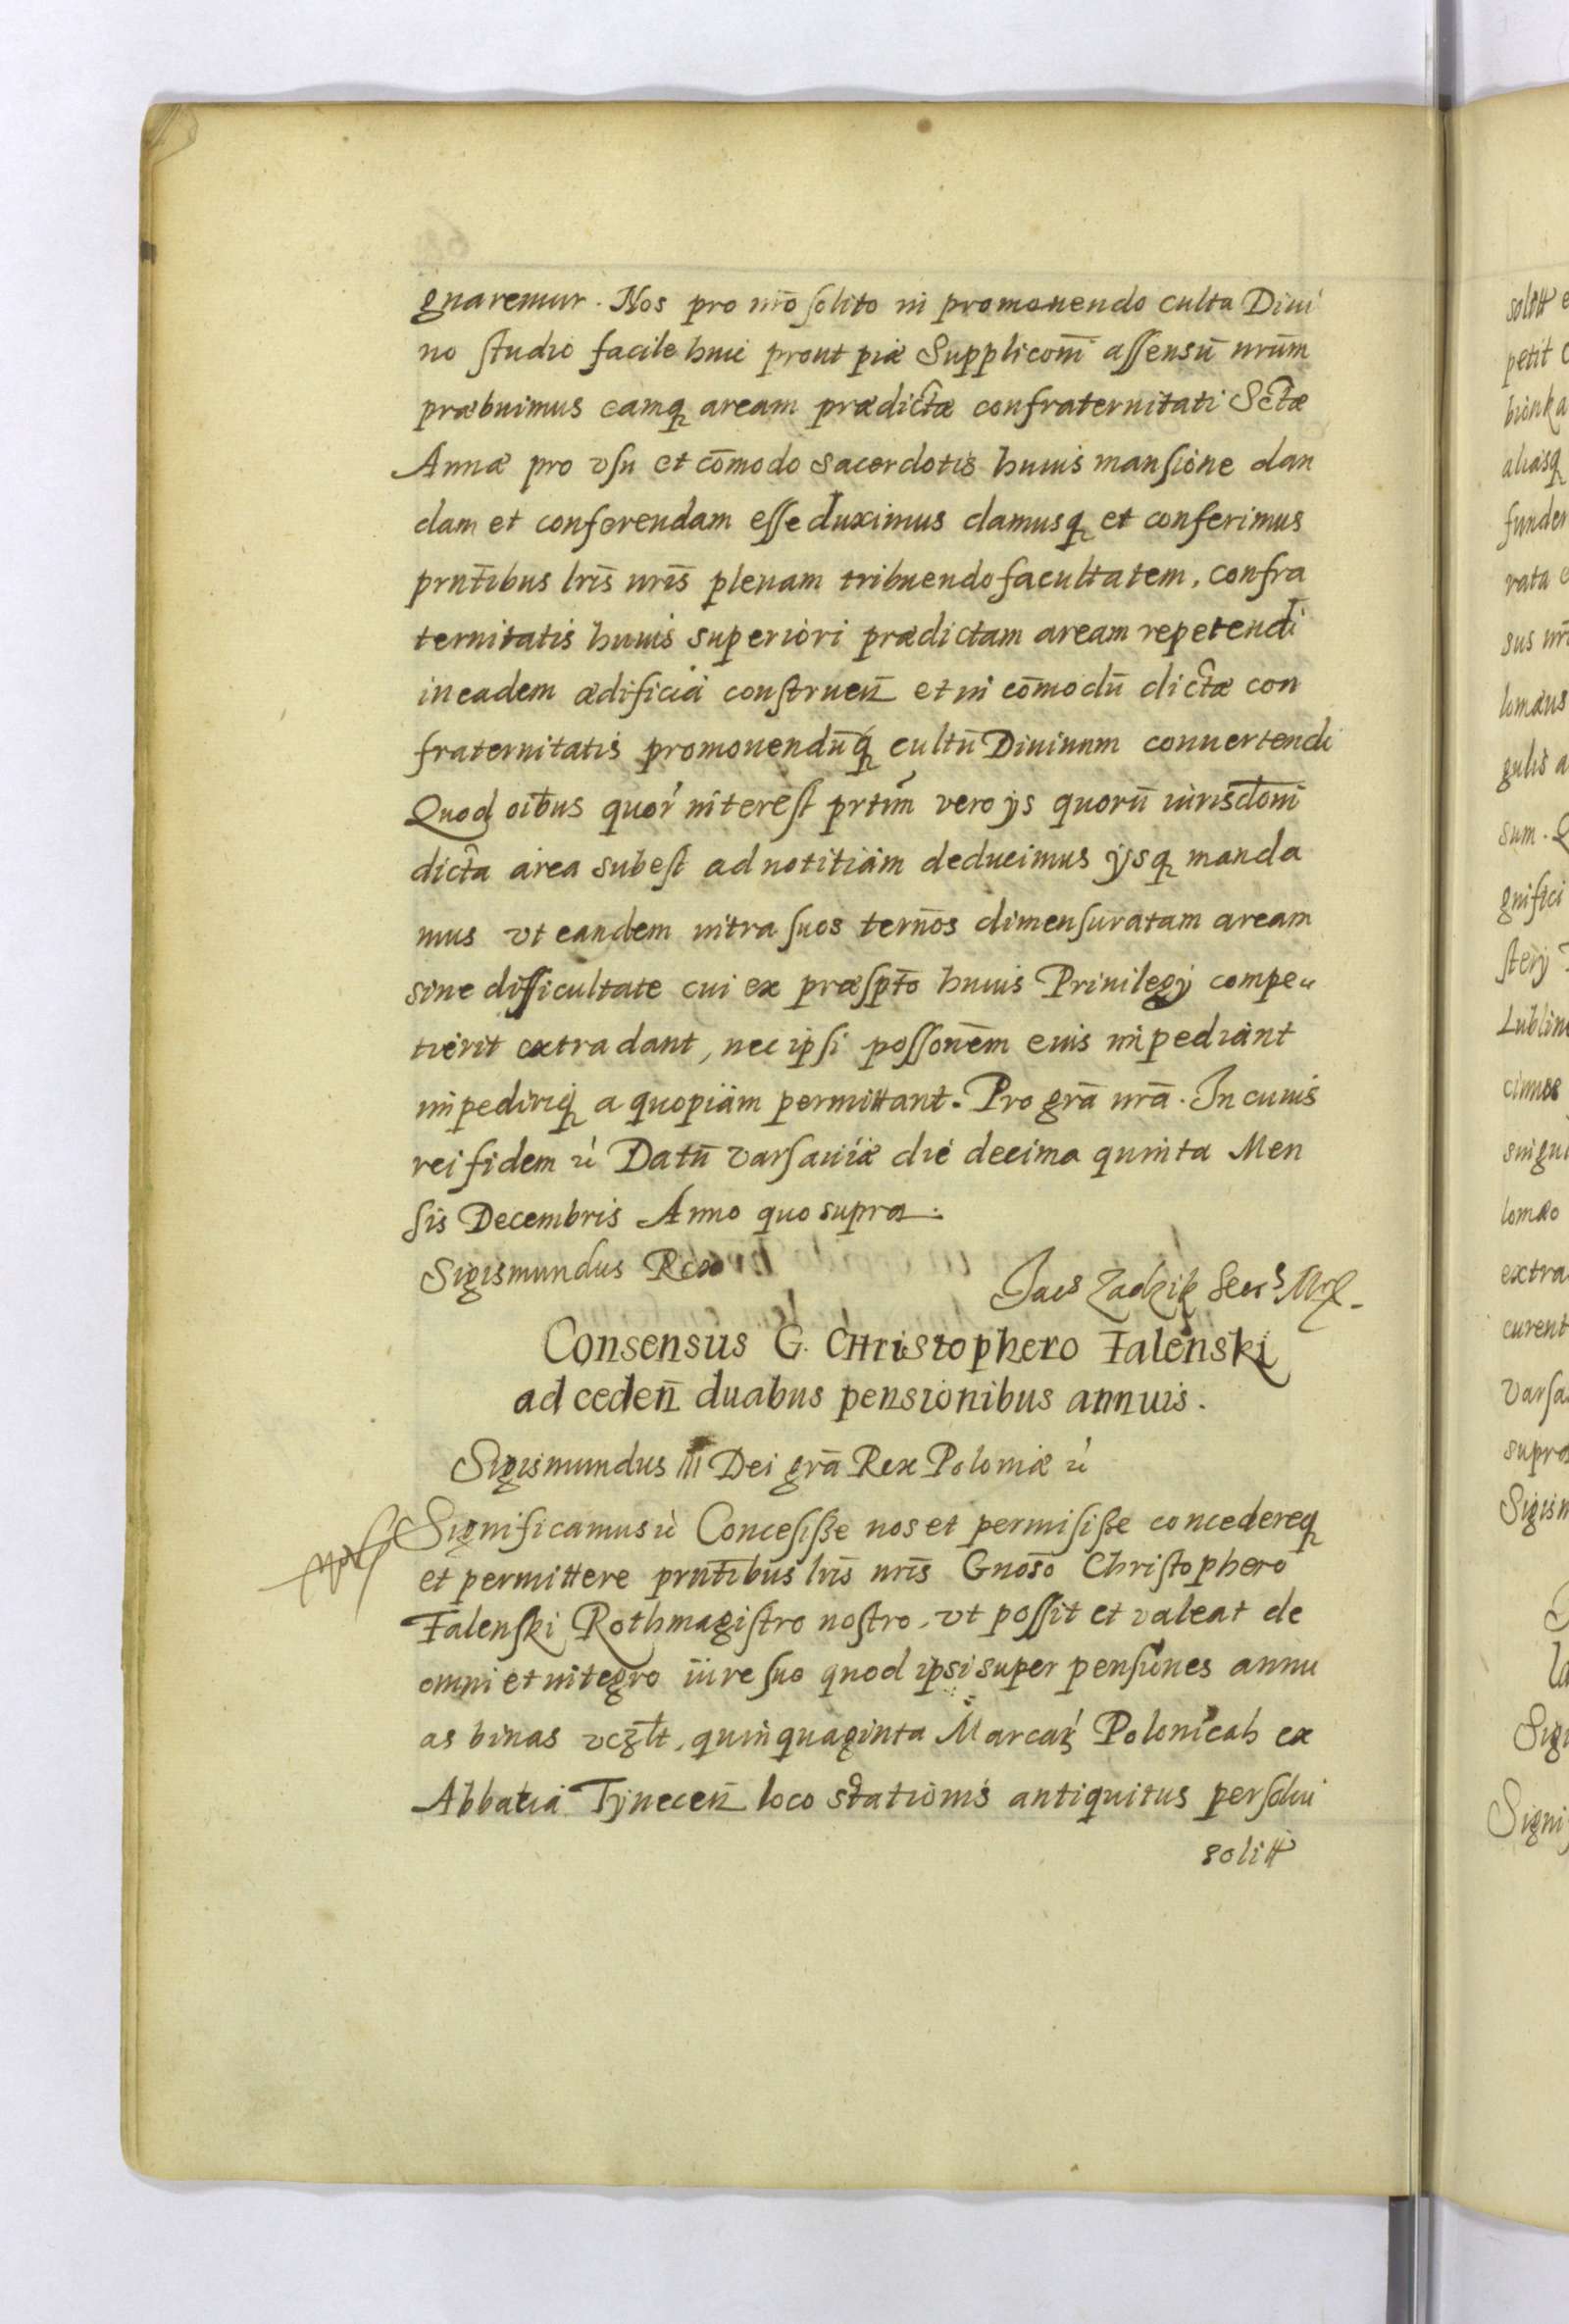 gnaremur. Nos pro nr̄o solito in promouendo culta Diui
no studio facile huic prout piæ Supplicoñi assensū nrūm
præbuimus eamq aream prædictæ confraternitati Sctæ
Annæ pro vsu et cōmodo sacerdotis huius mansione dan
dam et conferendam esse duximus damusq et conferimus
prntībus lrīs nrīs plenam tribuendo facultatem, confra
ternitatis huius superiori prædictam aream repetendi
in eadem ædificia construeñ et in cōmodū dictæ con
fraternitatis promouendūq cultū Diuinum conuertendi
Quod oibus quor' interest prtim vero ijs quorū iurisdoni
dicta area subest ad notitiam deducimus ijsq manda
mus vt eandem intra suos ternōs dimensuratam aream
sine difficultate cui ex præsptō huius Priuilegij compe„
tierit extradant, nec ipsi possonēm eius impediant
impediriq a quopiam permittant. Pro grā nrā. In cuius
rei fidem ꝛc Datū Varsauiæ die decima quinta Men
sis Decembris Anno quo supra.
Sigismundus Rex
Jacs Zadzik Secrs Mrg.
Consensus G. Christophero Falenski
ad cedeñ duabus pensionibus annuis.
Sigismundus III Dei grā Rex Poloniæ ꝛc
Significamus ꝛc Concesisse nos et permisisse concedereq
et permittere prntībus lrīs nrīs Gnosō Christophero
Falenski Rothmagistro nostro, vt possit et valeat de
omni et integro iure suo quod ipsi super pensiones annu
as binas vczlt, quinquaginta Marcar' Polonicah ex
Abbatia Tÿneceñ loco stationis antiquitus persolui
solitt